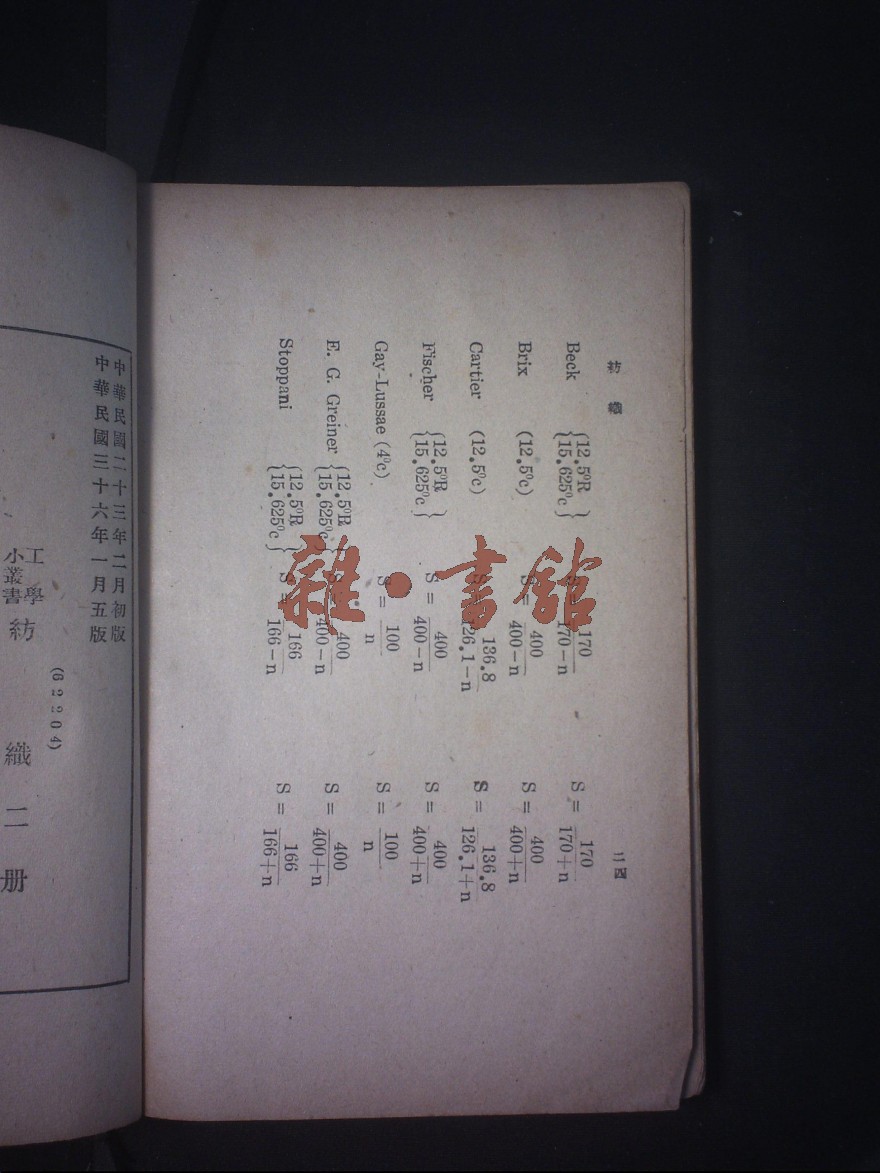 紡織
二四
Beck {12.5ºR 15.625ºc} S = 170/170−n S = 170/170+n
Brix (12.5ºc) S = 400/400−n S = 400/400+n
Cartier (12.5ºc) S = 136.8/126.1−n S = 136.8/126.1+n
Fischer {12.5ºR 15.625ºc} S = 400/400−n S = 400/400+n
Gay-Lussae (4ºc) S = 100/n S = 100/n
E. G. Greiner {12.5ºR 15.625ºc} S = 400/400−n S = 400/400+n
Stoppani {12.5ºR 15.625ºc} S = 166/166−n S = 166/166+n
中華民國二十三年二月初版
中華民國三十六年一月五版
(62204)
工學
小叢書
紡織二册
雜·書館